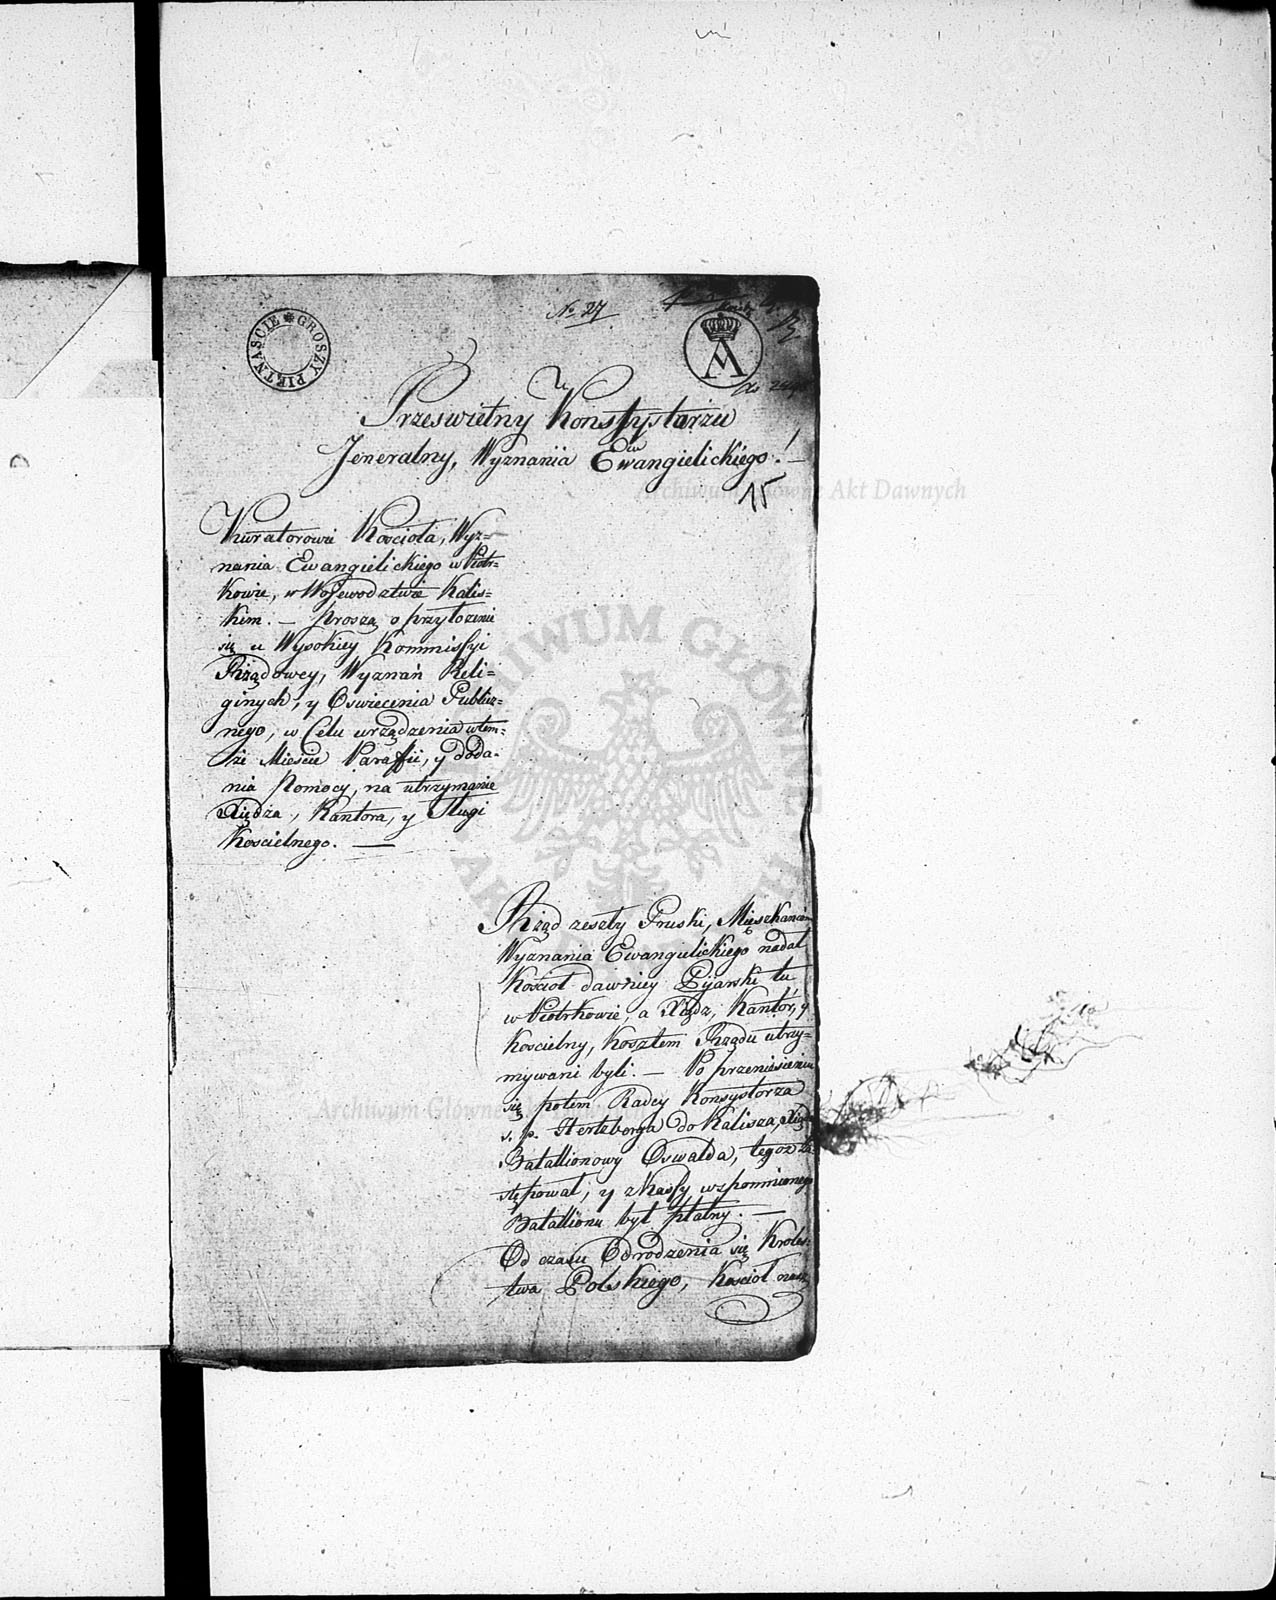 № 27
GROSZY PIĘTNAŚCIE
A
Przeswietny Konsystarzu
Jeneralny, Wyznania Ewangielickiego!
15
Archiwum Główne Akt Dawnych
Kuratorowie Kościoła, Wyz=
nania Ewangielickiego w Piotr=
kowie, w Wojewodztwie Kalis=
kim. — proszą o przyłożenie
się u Wysokiey Kommissyi
Rządowey, Wyznań Reli=
ginych, y Oswiecenia Publicz=
nego, w Celu urządzenia w tem=
że Mieście Paraffii, y doda-
nia Pomocy, na utrzymanie
Xiędza, Kantora, y Sługi
Kościelnego. —
Rząd zeszły Pruski, Mięszkańcom
Wyznania Ewangielickiego nadał
Kościoł dawniey Pijarski tu
w Piotrkowie, a Xiądz, Kantor, y
Kościelny, Kosztem Rządu utrzy=
mywani byli. — Po przeniesieniu
się potem Radcy Konsystorza
ś. p. Herteberga do Kalisza, Xiądz
Batallionowy Oswalda, tegoż za=
stępował, y z Kassy wspomnionego
Batallionu był płatny. —
Od czasu Odrodzenia się Krolest=
twa Polskiego, Kościoł nasz
ARCHIWUM GŁÓWNE